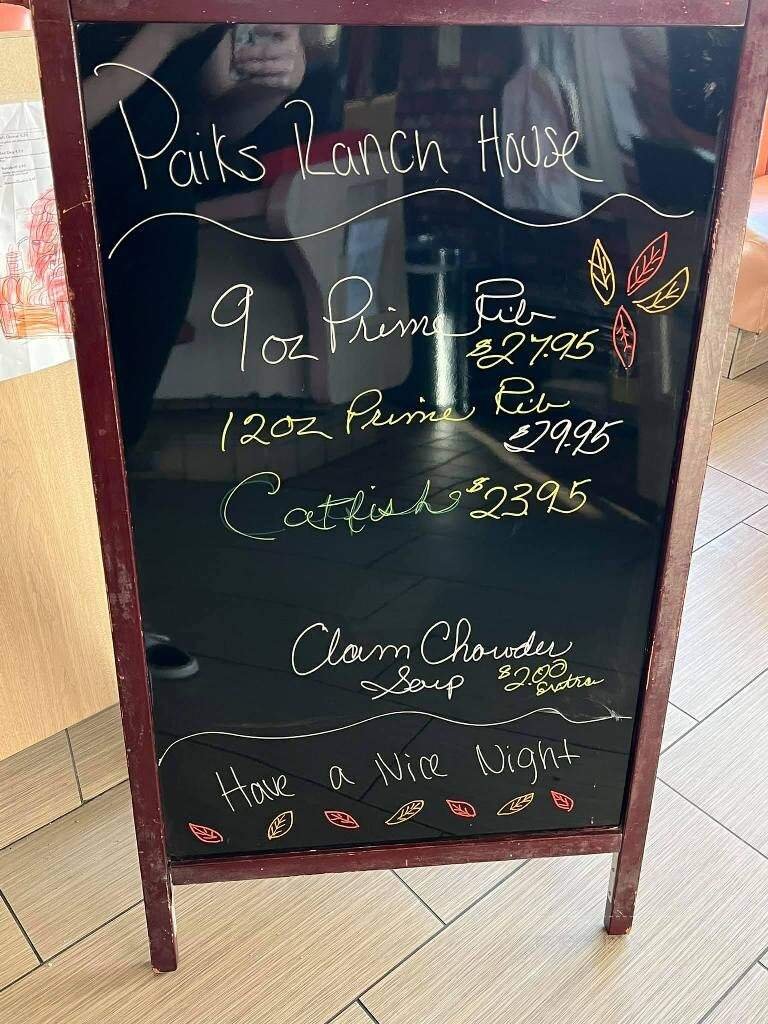 Paiks Ranch House
9oz Prime Rib
$27.95
12oz Prime Rib
$29.95
Catfish $23.95
Clam Chowder
Soup $2.00
Extra
Have a Nice Night